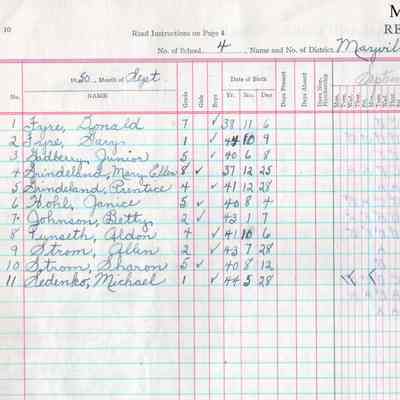 10
M
Read Instructions on Page 4
RE
No. of School 4, Name and No. of District. Mayvil
1950. Month of Sept
Date of Birth
No. NAME Grade Girls Boys Yr. Mo. Day Days Present Days Absent Days Non-Membership Mon. Tue. Wed.
1 Fyre, Donald 7 ✓ 38 11 6
2 Fyre, Gary 1 ✓ 44 10 9
3 Gidberg, Junior 5 ✓ 40 6 8
4 Grindeland, Mary Ellen 8 ✓ 37 12 25
5 Grindeland, Prentice 4 ✓ 41 12 28
6 Hohl, Janice 5 ✓ 40 8 4
7 Johnson, Betty 2 ✓ 43 1 7
8 Lynseth, Aldon 4 ✓ 41 10 6
9 Strom, Allan 2 ✓ 43 7 28
10 Strom, Sharon 5 ✓ 40 8 12
11 Dedenko, Michael 1 ✓ 44 5 28